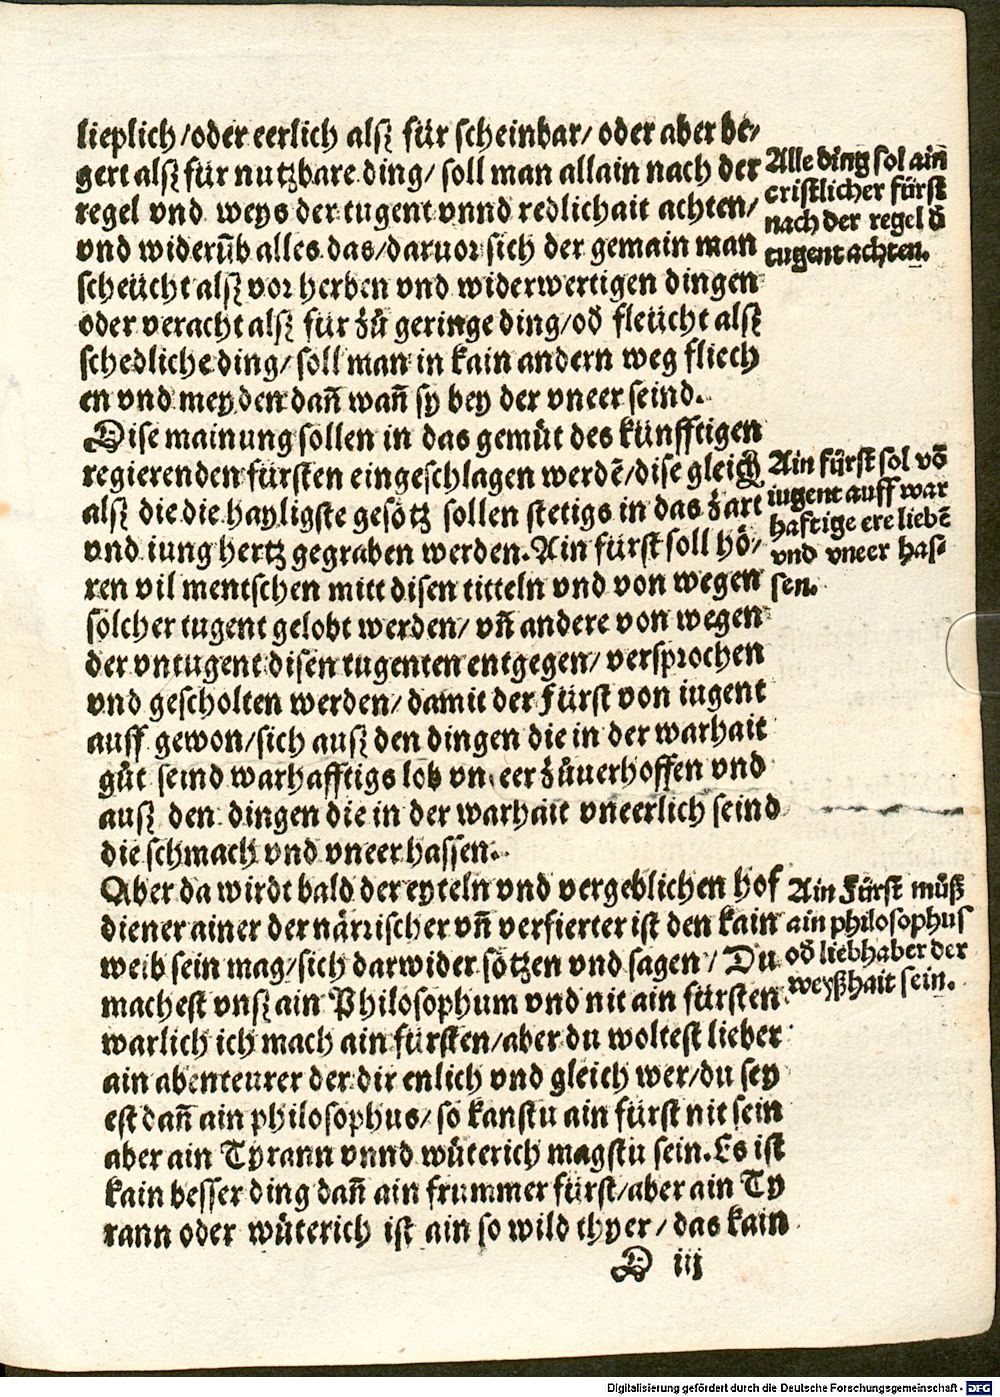 lieplich/oder eerlich alsz für scheinbar/ oder aber be/
gert alsz für nutzbare ding/ soll man allain nach der
regel vnd weys der tugent vnnd redlichait achten/
vnd widerūb alles das/daruor sich der gemain man
scheücht alsz vor herben vnd widerwertigen dingen
oder veracht alsz für zů geringe ding/od̄ fleücht alsz
schedliche ding/ soll man in kain andern weg fliech
en vnd meyden dañ wañ sy bey der vneer seind.
Alle ding sol ain
cristlicher fürst
nach der regel d̄
tugent achten.
Dise mainung sollen in das gemüt des künfftigen
regierenden fürsten eingeschlagen werdē/dise gleich
alsz die die hayligste gesötz sollen stetigs in das zart
vnd iung hertz gegraben werden. Ain fürst soll hö/
ren vil mentschen mitt disen titteln vnd von wegen
solcher tugent gelobt werden/ vñ andere von wegen
der vntugent disen tugenten entgegen/ versprochen
vnd gescholten werden/ damit der Fürst von iugent
auff gewon/sich ausz den dingen die in der warhait
gůt seind warhafftigs lob vn eer zůuerhoffen vnd
ausz den dingen die in der warhait vneerlich seind
die schmach vnd vneer hassen.
Ain fürst sol vō
iugent auff war
hafftige ere liebē
vnd vneer has/
sen.
Aber da wirdt bald der eyteln vnd vergeblichen hof
diener ainer der närrischer vñ verfierter ist den kain
weib sein mag/sich darwider sötzen vnd sagen/ Du
machest vnsz ain Philosophum vnd nit ain fürsten
warlich ich mach ain fürsten/aber du woltest lieber
ain abenteurer der dir enlich vnd gleich wer/du sey
est dañ ain philosophus/ so kanstu ain fürst nit sein
aber ain Tyrann vnnd wüterich magstu sein. Es ist
kain besser ding dañ ain frummer fürst/aber ain Ty
rann oder wüterich ist ain so wild thyer/ das kain
Ain Fürst můß
ain philosophus
od̄ liebhaber der
weyßhait sein.
D iij
Digitalisierung gefördert durch die Deutsche Forschungsgemeinschaft - DFG